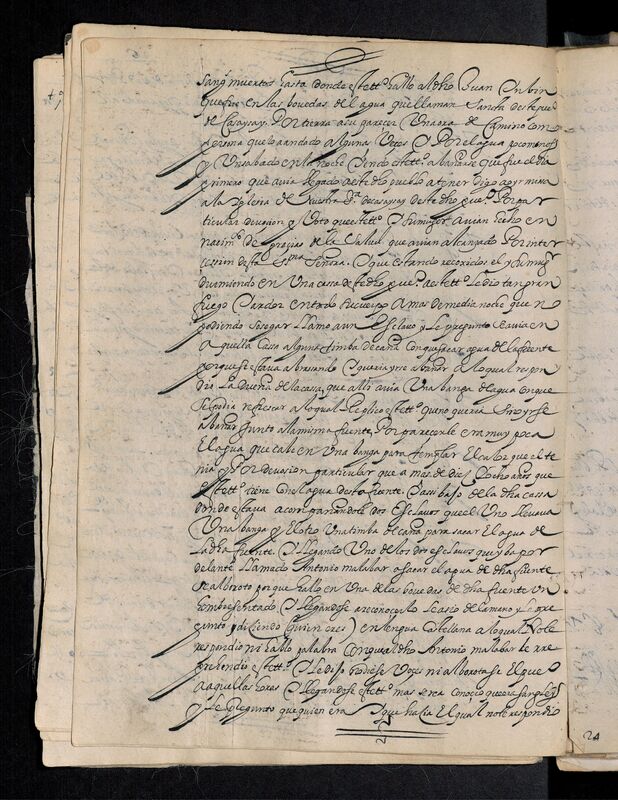 sang.^s muertos hasta donde este tt.^o hallo al dho Juan Inbin
que fue en las bovedas del agua que llaman Sancta deste pueblo
de Casaysay. Por tierra a su parecer Una ora de Camino Con
persona que lo a andado algunas Veces Y Por el agua poco menos
Y Un sabado en la noche Yendo este tt.^o a bañarse que fue el dia
primero que avia llegado a este dho pueblo a tener digo a oyr missa
a la Yglesia de Nuestra S.^ra de casaysay deste dho pue.^o Por par
ticular devocion y Voto que este tt.^o Y su muger avian fecho en
nacim.^to de gracias de la Salud que avian alcançado Por inter
cession desta S.^ma Señora. Y que estando recoxidos el y su mug.^r
durmiendo en Una casa deste dho pue.^o a este tt.^o le dio tan gran
fuego Y ardor en todo su cuerpo a mas de media noche que no
pudiendo Sosegar Llamo a un Esclavo y Le pregunto si avia en
aquella Casa alguna timba de caña Con que sacar agua de la fuente
porque se estava abrasando Y queria yrse a bañar a lo qual respon
dio La dueña de la casa que alli avia Una banga de agua con que
Se podia refrescar a lo qual Replico este tt.^o que no queria Sino yrse
a bañar Junto a la misma fuente, Por parecerle era muy poca
El agua que cabe en Una banga para templar El calor que el te
nia y Por devocion particular que a mas de diez Y ocho años que
este tt.^o tiene Con el agua desta fuente. Y assi baxo de la dha cassa
donde estava acompañandole dos Esclavos que el Uno llevava
Una banga y El otro Una timba de caña para sacar El agua de
La dha fuente. Y llegando Uno de los dos esclavos que yba por
delante Llamado Antonio malabar a sacar el agua de dha fuente
Se alboroto porque hallo en Una de las bovedas de dha fuente Un
hombre sentado, Y llegandose a reconocerlo Le asio de la mano y Le pre
gunto y diciendo (quien eres) en lengua Castellana a lo qual No le
respondio ni hablo palabra Con que al dho Antonio malabar le re
prehendio este tt.^o Y Le dixo no diese Voces ni alborotase El pue.^o
a aquellas horas Y llegandose este tt.^o mas cerca Conocio que era sangley
Y Le pregunto que quien era Y que hazia El qual no le respondio
24